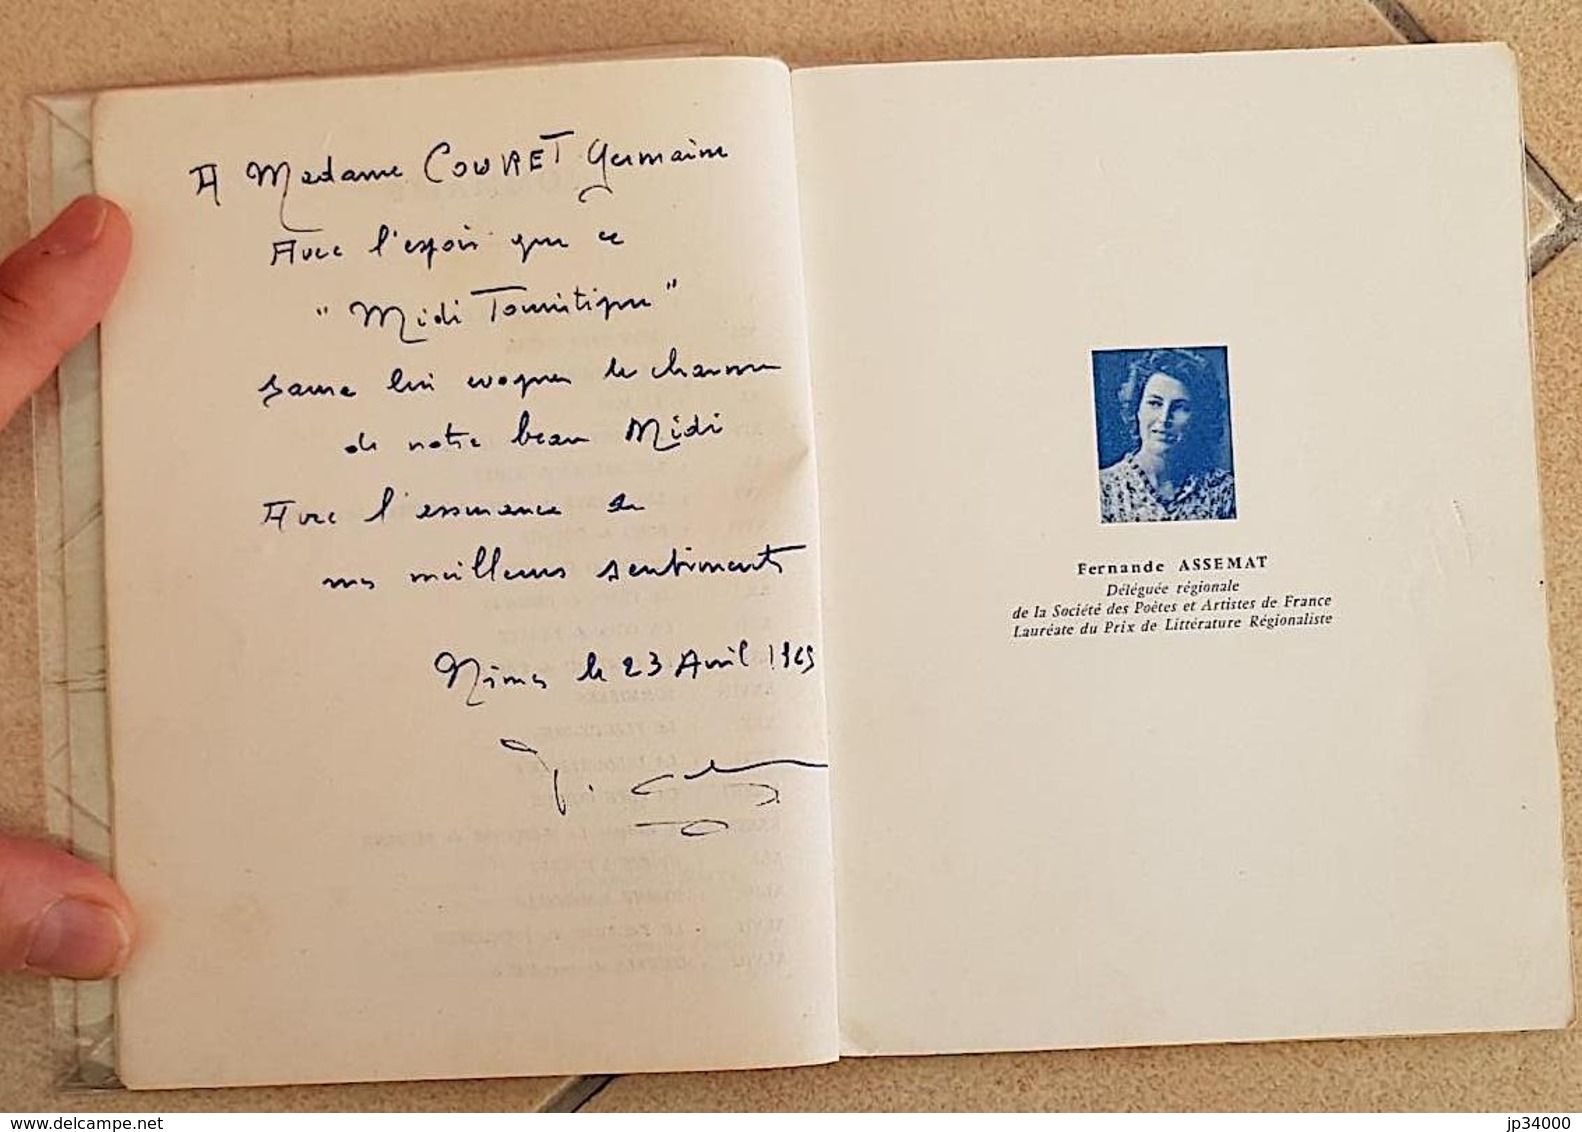 A Madame COURET Germaine
Avec l'espoir que ce
"Midi Touristique"
saura lui evoquer le charme
de notre beau Midi
Avec l'assurance de
mes meilleurs sentiments
Nimes le 23 Avril 1969
Fernande ASSEMAT
Déléguée régionale
de la Société des Poètes et Artistes de France
Lauréate du Prix de Littérature Régionaliste
www.delcampe.net
jp34000